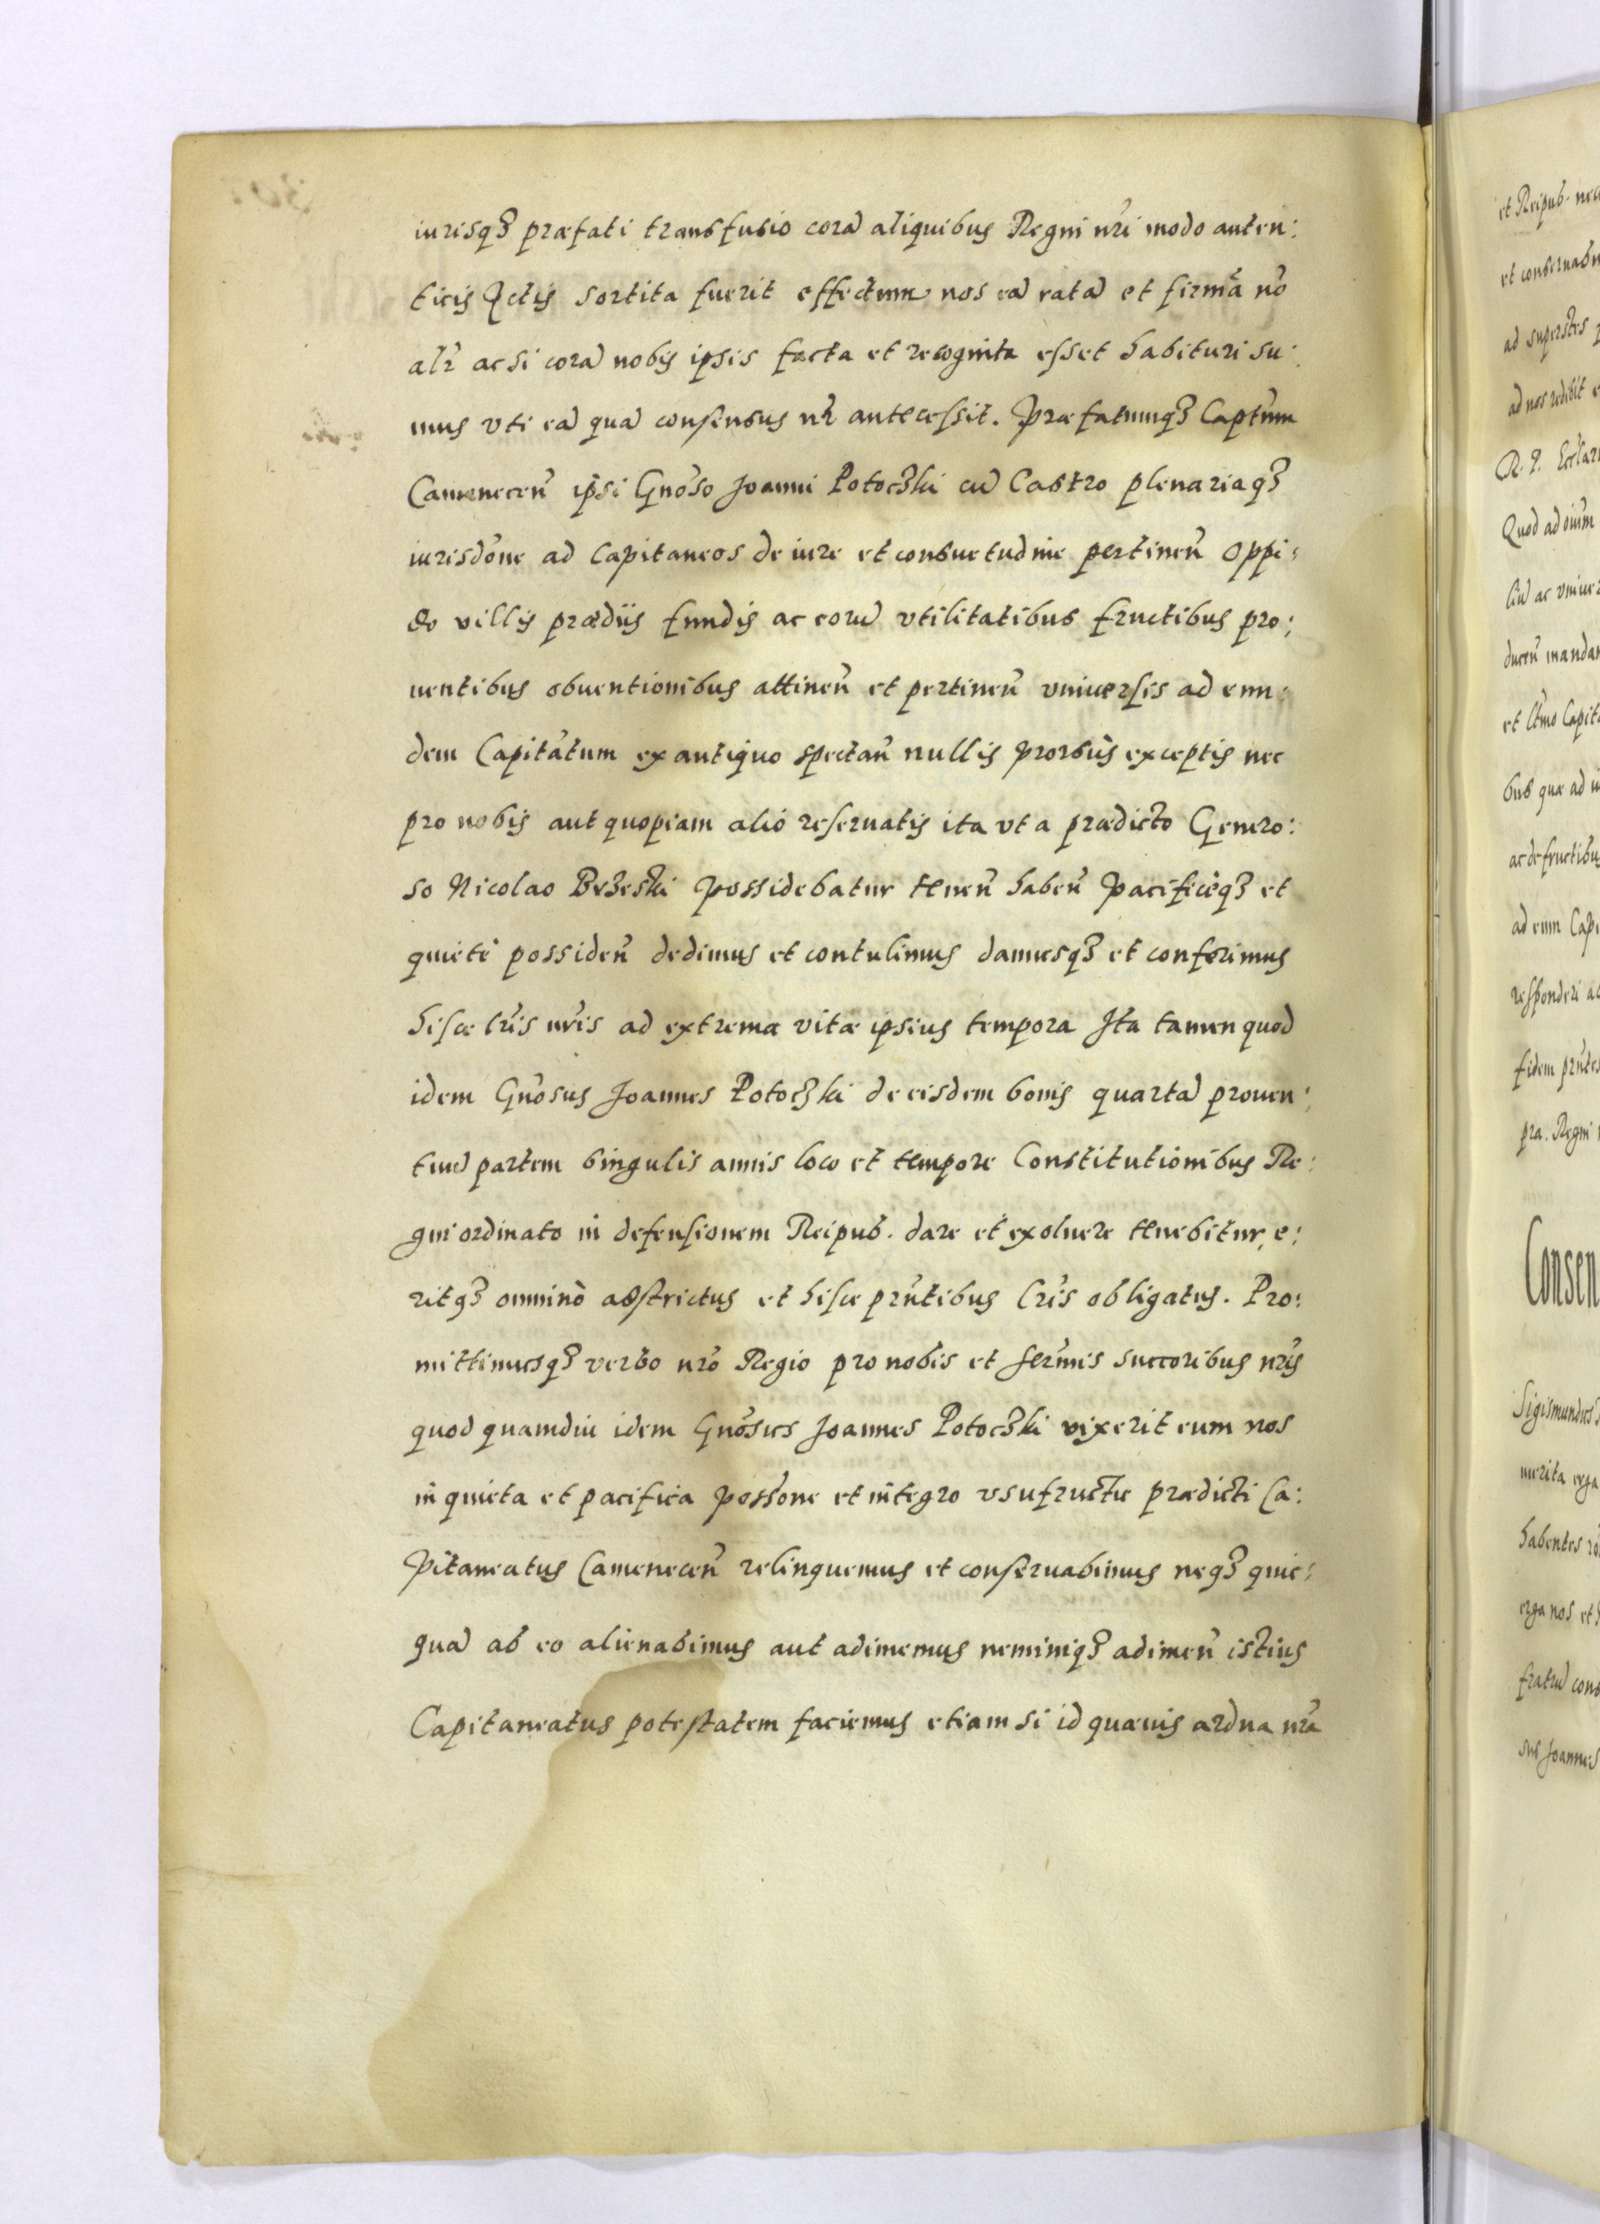 iurisqȝ præfati transfusio corã aliquibus Regni nr̃i modo auten:
ticis Actis sortita fuerit effectum nos eã ratã et firmã nõ
alr̃ ac si corã nobis ipsis facta et recognita esset habituri su:
mus vti eã quã consensus nr̃ antecessit. Præfatumqȝ Captum̃
Camenecen̄ ipsi Gnoso Joanni Potocȝki cũ Castro plenariaqȝ
iurisdõne ad Capitaneos de iure et consuetudine pertinen̄ Oppi:
do villis prædiis fundis ac eorũ vtilitatibus fructibus pro:
uentibus obuentionibus attinen̄ et pertinen̄ vniuersis ad eun:
dem Capitãtum ex antiquo spectan̄ nullis prorsùs exceptis nec
pro nobis aut quopiam alio reseruatis ita vt a prædicto Genero:
so Nicolao Brȝeski possidebatur tenen̄ haben̄ pacificèqȝ et
quietè possiden̄ dedimus et contulimus damusqȝ et conferimus
hisce lr̃is nr̃is ad extrema vitæ ipsius tempora Ita tamen quod
idem Gnõsus Joannes Potocȝki de eisdem bonis quartã prouen:
tuũ partem singulis annis loco et tempore Constitutionibus Re:
gni ordinato in defensionem Reipub. dare et exoluere tenebitur, e:
ritqȝ omninò adstrictus et hisce prñtibus lr̃is obligatus. Pro:
mittimusqȝ verbo nr̃o Regio pro nobis et Serm̃is succoribus nr̃is
quod quamdiu idem Gnõsus Joannes Potocȝki vixerit eum nos
in quieta et pacifica possõne et integro vsufructu prædicti Ca:
pitaneatus Camenecen̄ relinquemus et conseruabimus neqȝ quic:
quã ab eo alienabimus aut adimemus neminiqȝ adimen̄ istius
Capitaneatus potestatem faciemus etiam si id quæuis ardua nr̃a
et Reipub. nec
ad nos redibit
Quod ad
et
bus quæ ad
ac de fructibus
ad eum
responderi ac
fidem prñtes
pra. Regni
Consen
Sigismundus
merita erga
habentes
erga nos et
fratrũ cons
sus Joannes